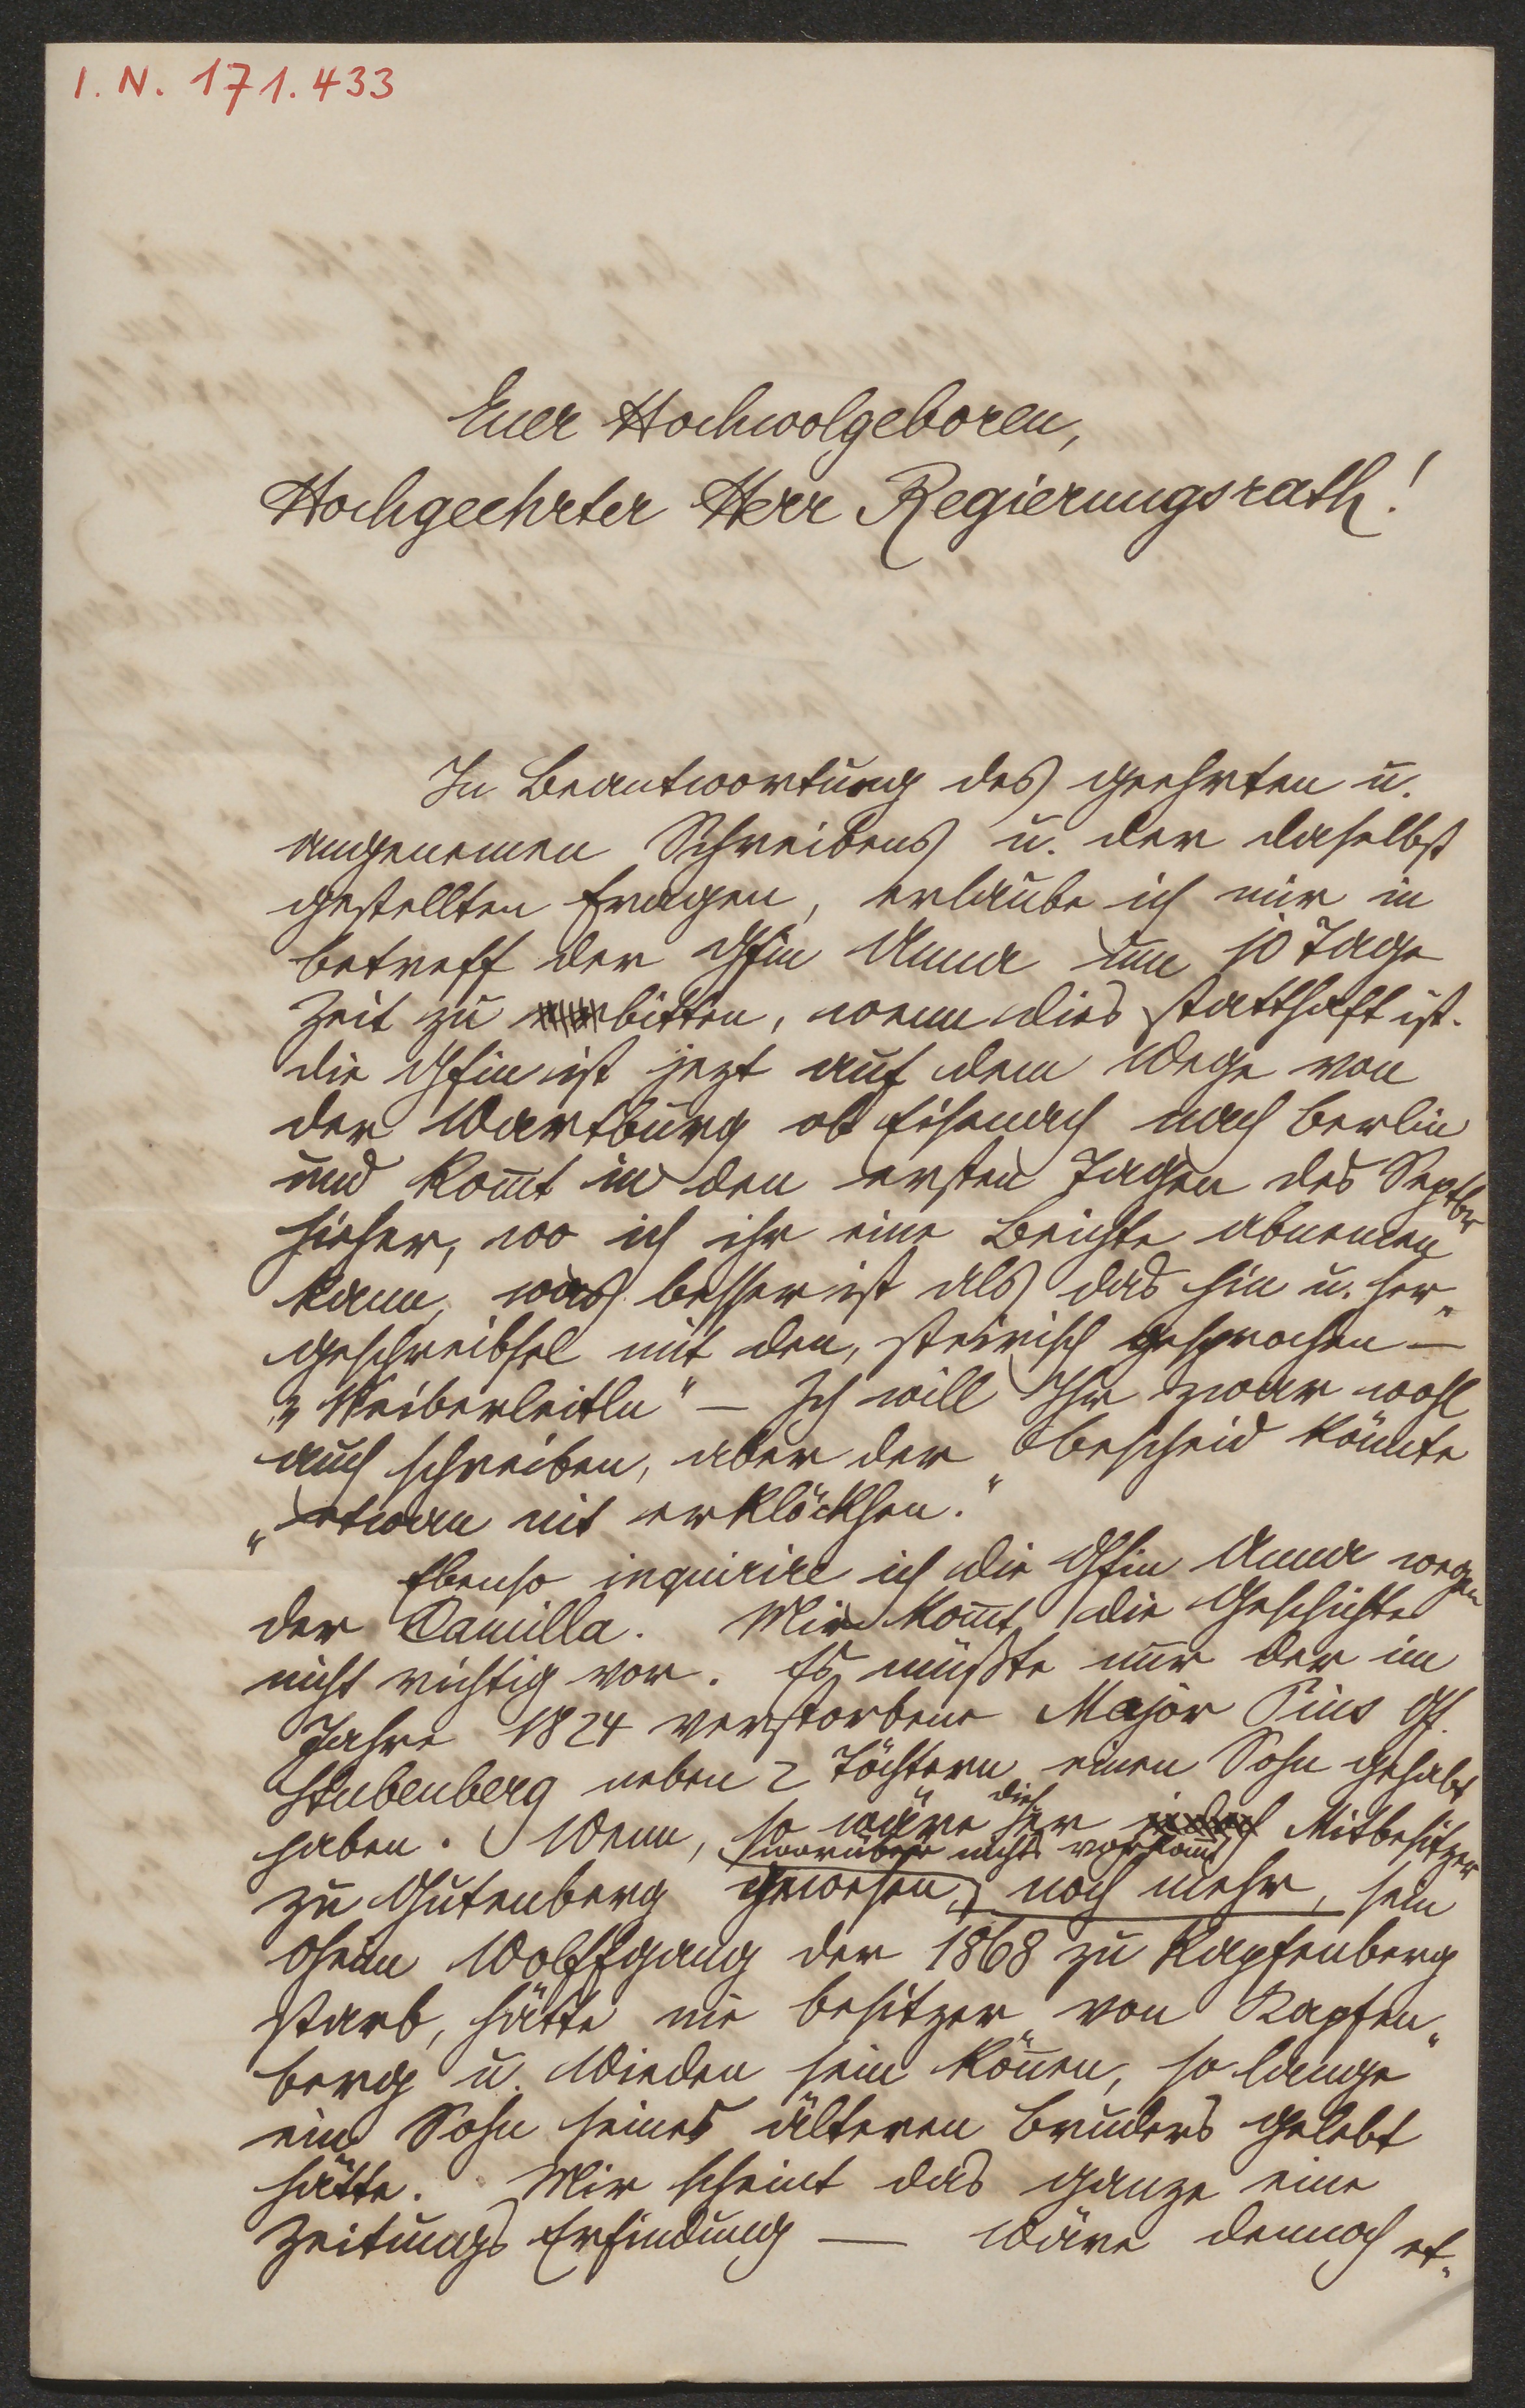 I. N. 171.433
Euer Hochwolgeboren,
Hochgeehrter Herr Regierungsrath!
In Beantwortung des geehrten u.
angenemen Schreibens u. der daselbst
gestellten Fragen, erlaube ich mir in
betreff der Gfin Anna um 10 Tage
Zeit zu bitten, wenn dies statthaft ist.
die Gfin ist jezt auf dem Wege von
der Wartburg ob Eisenach nach Berlin
und kom̄t in den ersten Tagen des Septbr
hieher, wo ich ihr eine Beichte abnemen
kann, was besser ist als das hin u. her„
geschreibsel mit den, steirisch gesprochen —
„Weiberleitln" — Ich will Ihr zwar wohl
auch schreiben, aber der Bescheid könnte
„etwan nit erklöckhen."
Ebenso inquirire ich die Gfin Anna wegen
der Camilla. Mir kom̄t die Geschichte
nicht richtig vor. Es müßte nur der im
Jahre 1824 verstorbene Major Pius Gf.
Stubenberg neben 2 Töchtern einen Sohn gehabt
haben. Wenn, so wäre dieser jedoch Mitbesitzer
zu Gutenberg gewesen, (worüber nichts vorkom̄t) noch mehr, sein
Oheim Wolffgang der 1868 zu Kapfenberg
starb, hätte nie besitzer von Kapfen„
berg u. Wieden sein kön̄en, so lange
ein Sohn seines älteren Bruders gelebt
hätte. Mir scheint das ganze eine
Zeitungs Erfindung — Wäre dennoch et„